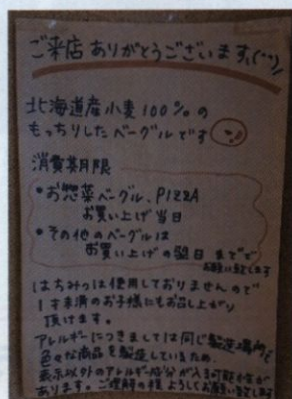 ご来店ありがとうございます(^^)/
北海道産小麦100%の
もっちりしたベーグルです
消費期限
•お惣菜ベーグル、PIZZA
お買い上げ当日
•その他のベーグルは
お買い上げの翌日までで
お願い致します
はちみつは使用しておりませんので
1才未満のお子様にもお召し上がり
頂けます。
アレルギーにつきましては同じ製造場所で
色々な商品を製造しているため、
表示以外のアレルギー成分が入る可能性が
あります。ご理解の程よろしくお願い致します